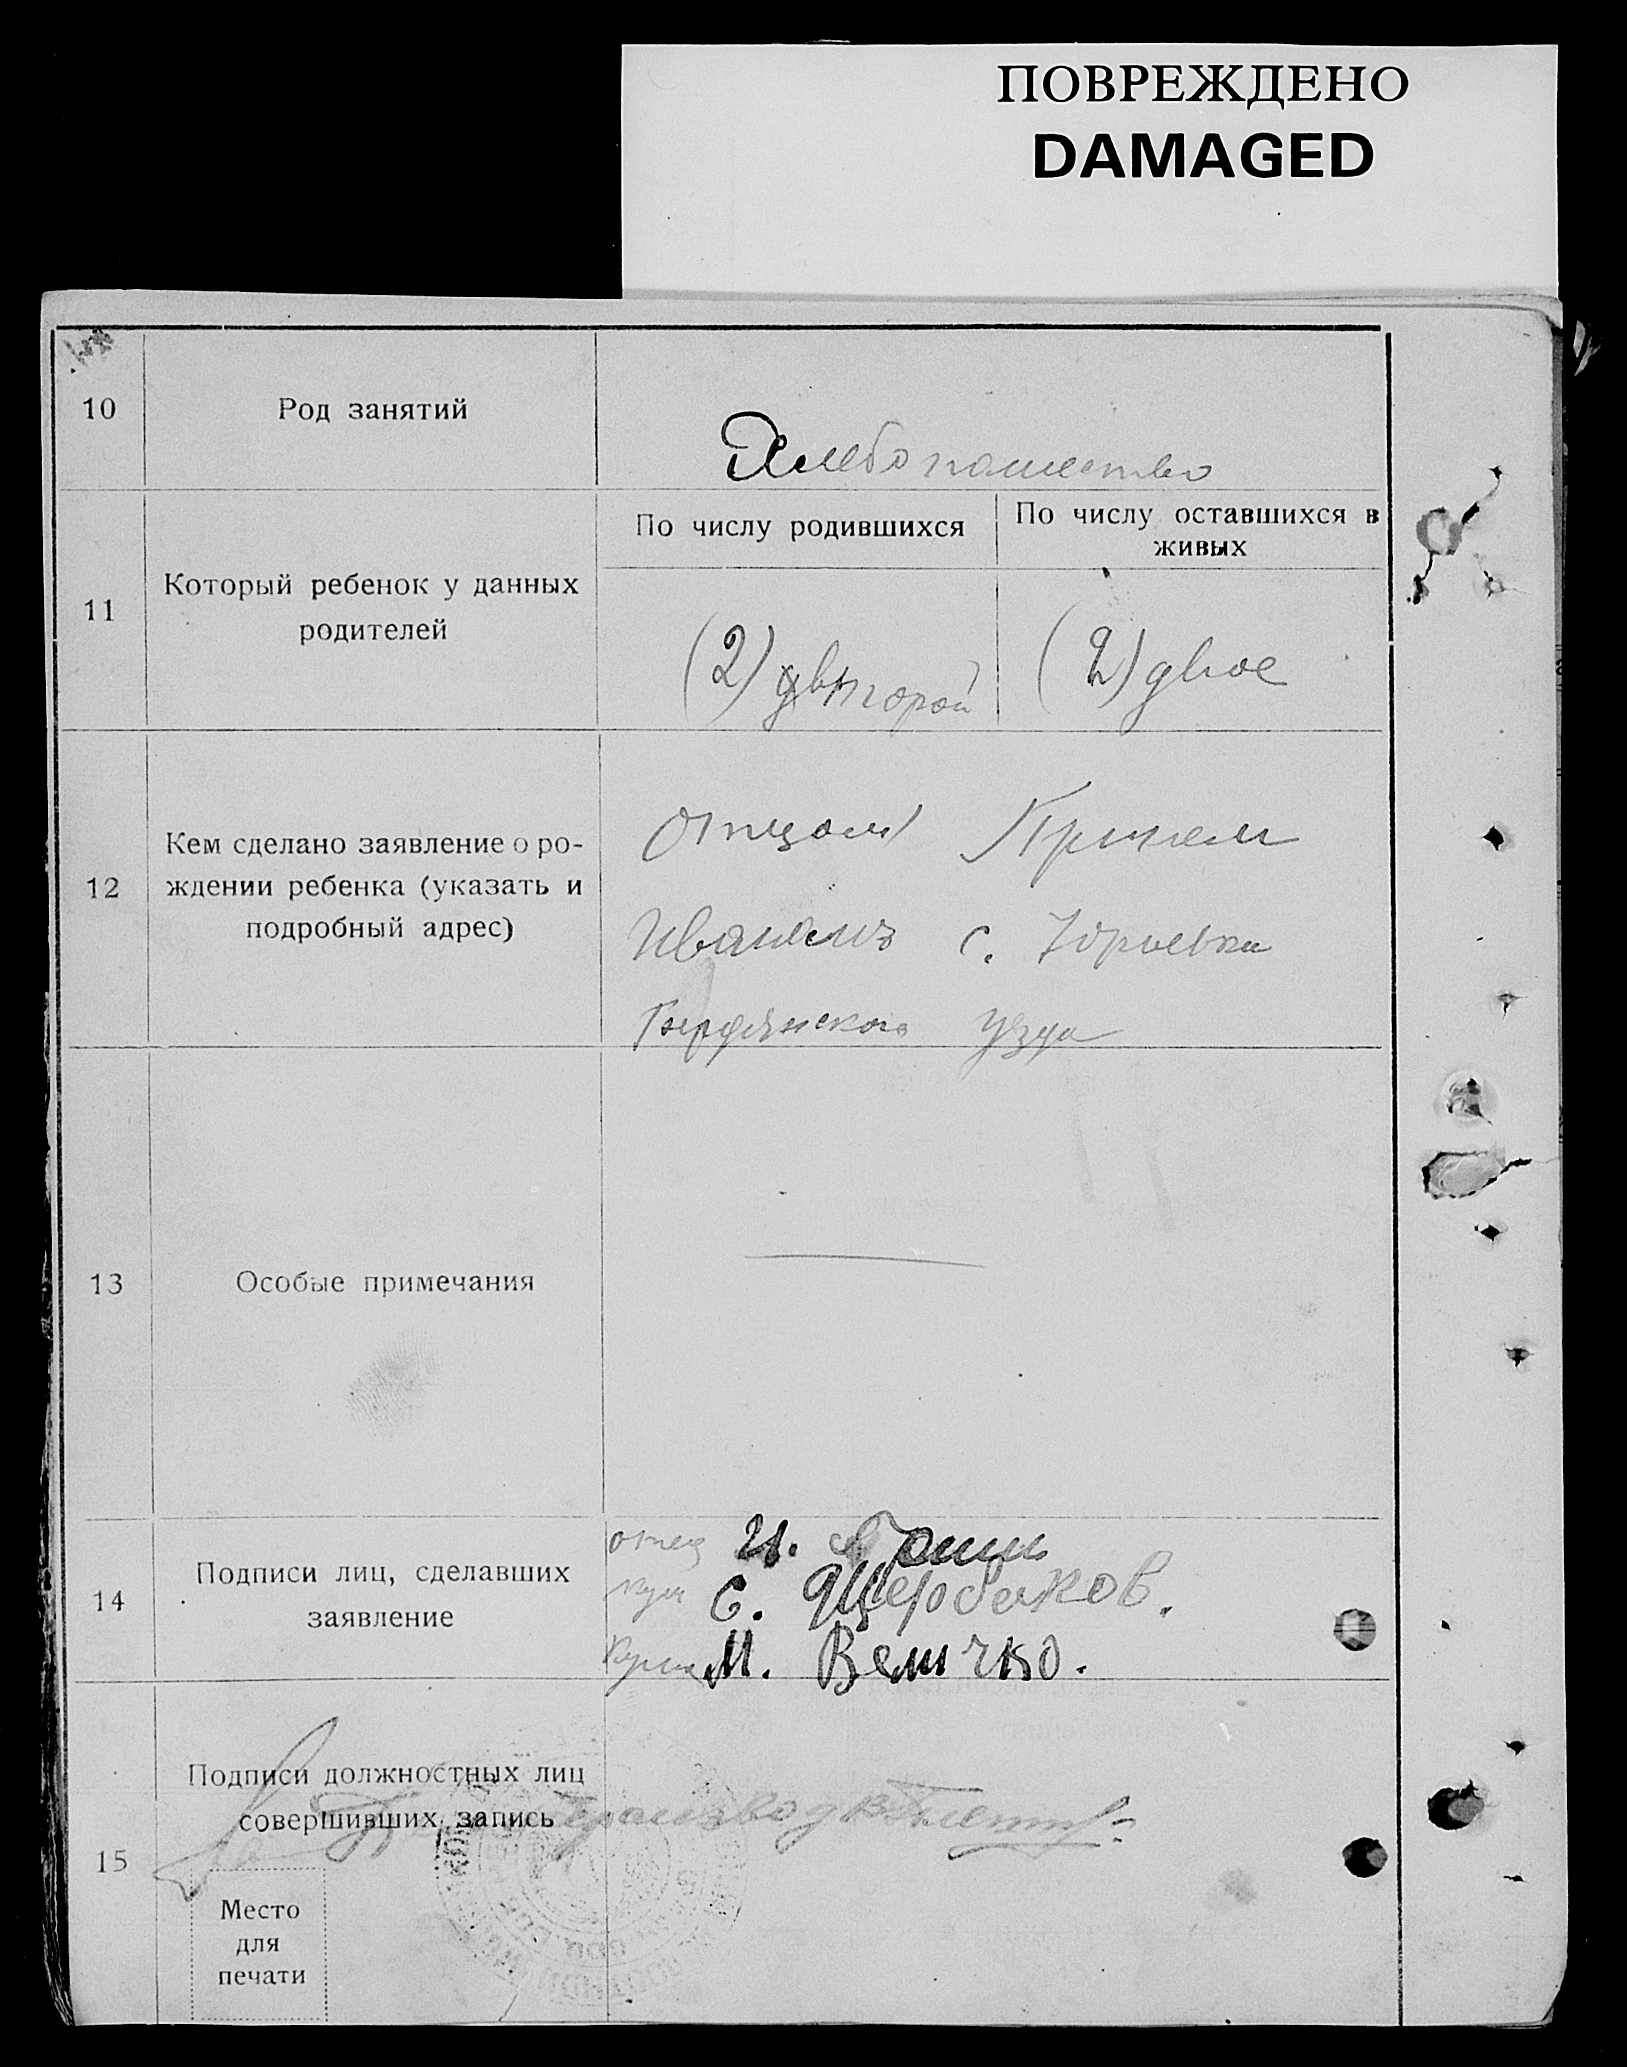 ПОВРЕЖДЕНО
DAMAGED
10 Род занятий
Хлебопашество
11 Который ребенок у данных
родителей
По числу родившихся
По числу оставшихся в
живых
(2) второй
(2) двое
12 Кем сделано заявление о ро-
ждении ребенка (указать и
подробный адрес)
отцом
Иваномъ с. Юрьевки
Бердянского узда
13 Особые примечания
14 Подписи лиц, сделавших
заявление
отец И.
кум С. Щербаков.
Кума М. Величко.
15 Подписи должностных лиц
совершивших запись
Место
для
печати